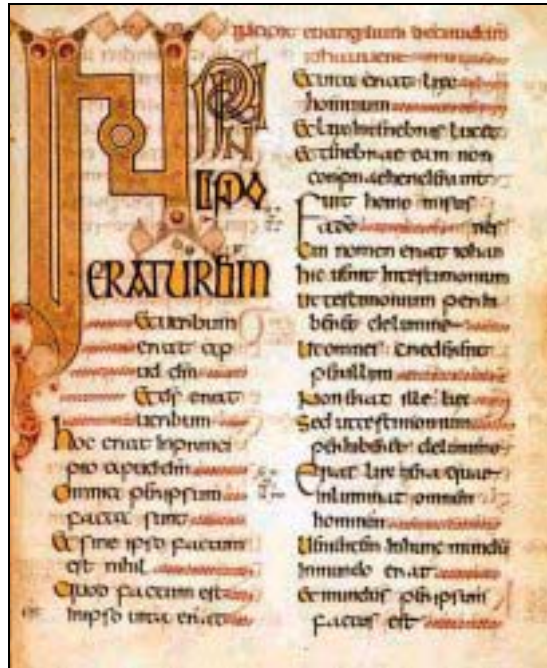 Incipit euangelium secundum
iohannen
IN PRIN
CIPIO
ERAT UERBUM
Et uerbum
erat ap
ud dm
Et ds erat
uerbum
hoc erat inprinci
pio apud dm
Omnia per ipsum
facta sunt
Et sine ipso factum
est nihil
Quod factum est
Inipso uita erat
Et uita erat lux
hominum
Et lux intenebris lucet
Et tenebrae eam non
conpraehenderunt
Fuit homo misus
a do nes
Cui nomen erat iohan
hic uenit intestimonium
ut testimonium perhi
beret delumine
Ut omnes crederent
per illum
Non erat ille lux
Sed ut testimonium
perhiberet delumine
Erat lux uera quae
inluminat omnem
hominem
Uenientem inhunc mundu
Inmundo erat
Et mundus per ipsum
factus est